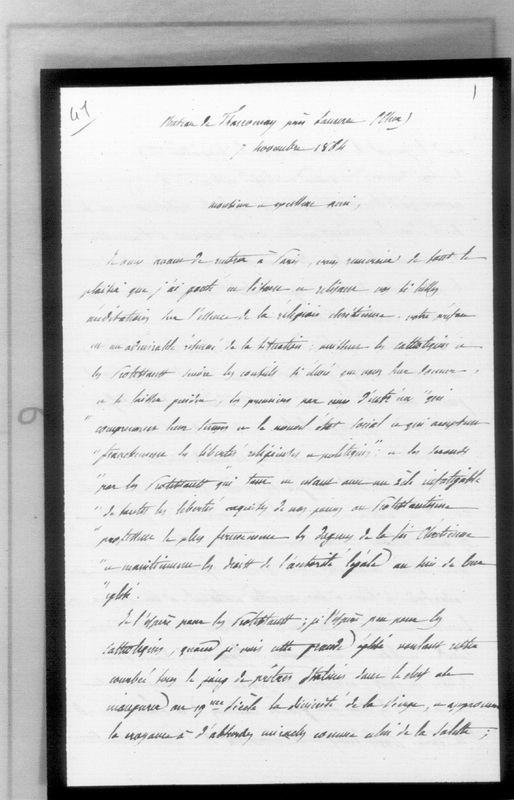 41
1
Château de près (Cher)
7 novembre 1864
Monsieur et excellent ami,
Je veux avant de rentrer à Paris, vous remercier de tout le
plaisir que j'ai goûté en lisant et relisant vos si belles
méditations sur l'essence de la religion chrétienne. votre préface
est un admirable résumé de la situation; veuillent les catholiques et
les Protestants suivre les conseils si élevés que vous leur donnez,
et se laisser guider, les premiers par ceux d'entr'eux "qui
"comprennent leur temps et le nouvel état social et qui acceptent
"franchement les libertés religieuses et politiques": et les seconds
"par les Protestants" qui tout en usant avec un zèle infatigable
"de toutes les libertés acquises de nos jours au Protestantisme
"professent le plus fermement les dogmes de la foi Chrétienne
"et maintiennent les droits de l'autorité légale au sein de leur
"église.
Je l'espère pour les Protestants; je l'espère peu pour les
Catholiques, quand je vois cette grande église voulant rester
courbée sous le joug de prêtres Italiens dans le but de
au 19me siècle la divinité de la Vierge, et
la croyance à d'absurdes miracles comme celui de la Salette;